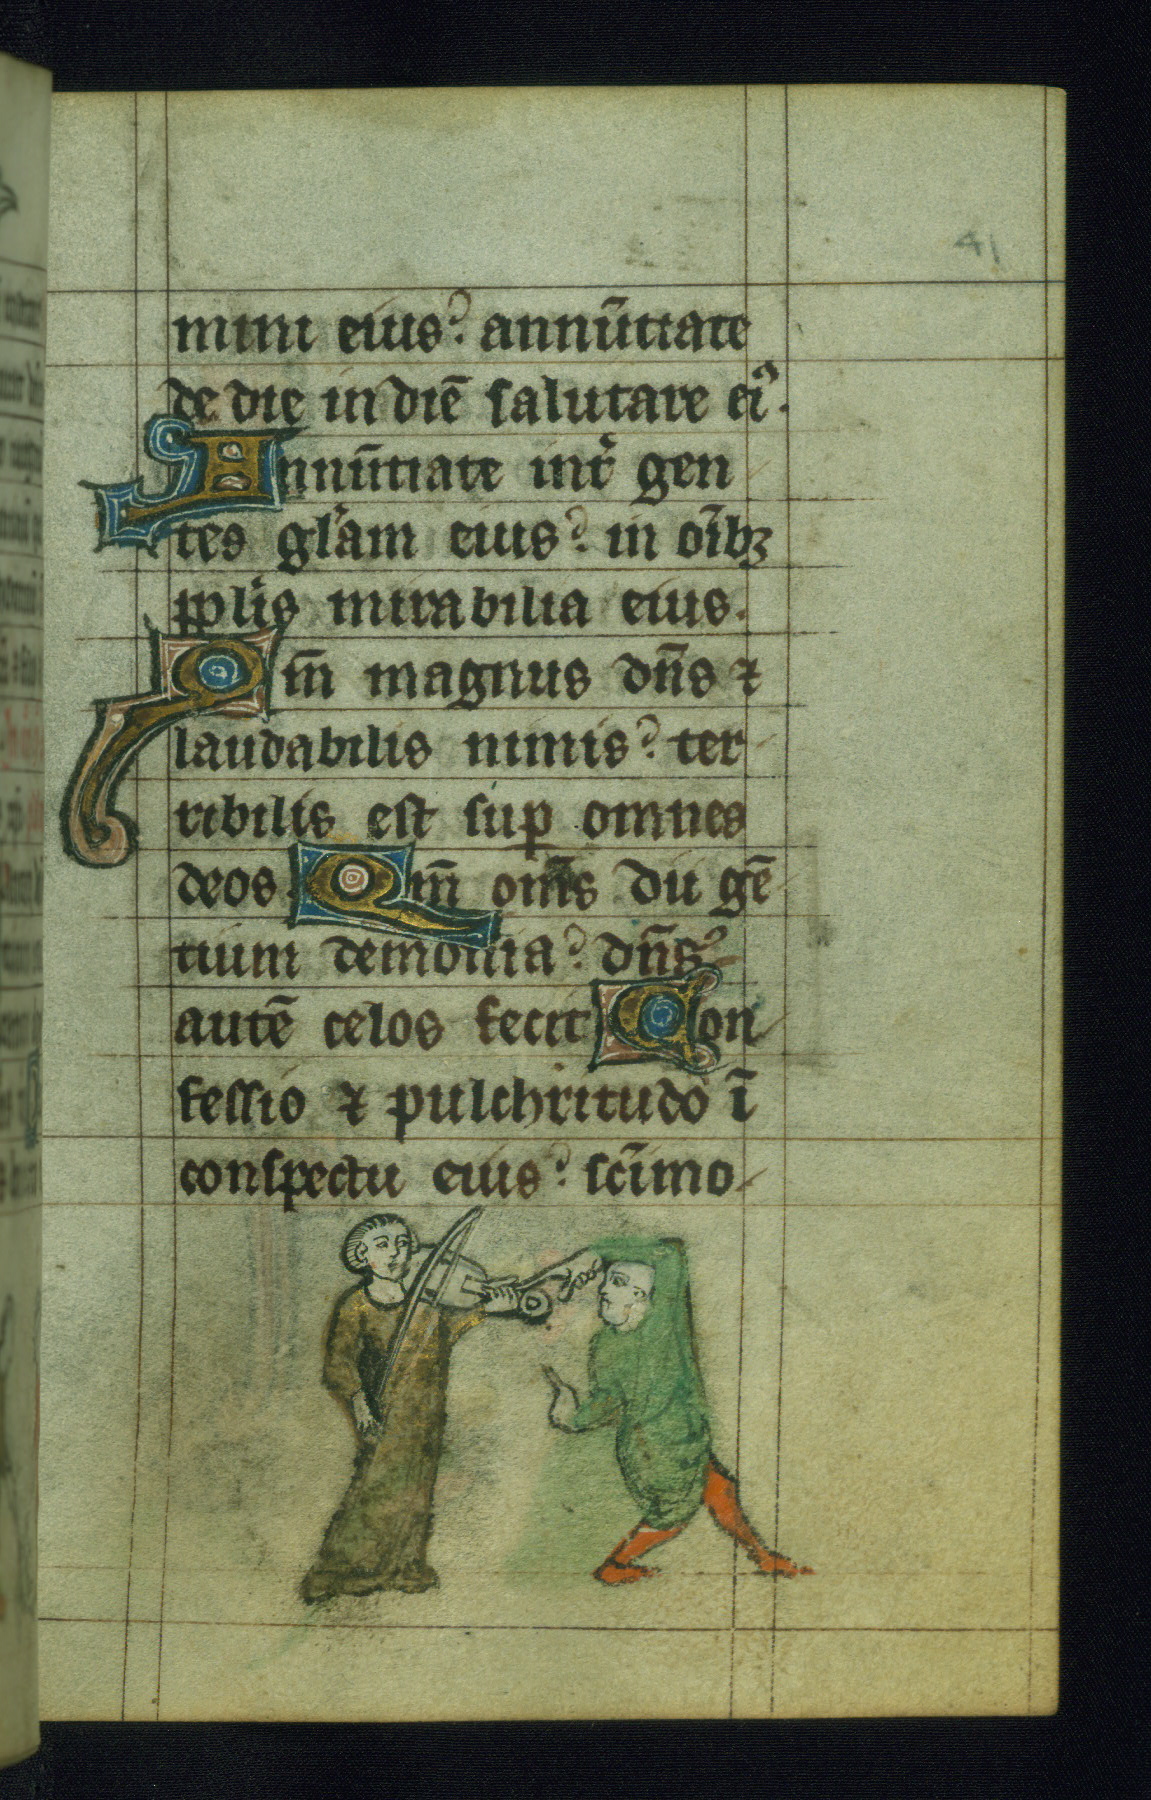 41
mini eius? annũtiate
de die in diẽ salutare ei᾿.
Annũtiate int̾ gen
tes gl̾am eius? in oĩbꝫ
pp̾lis mirabilia eius.
Qm̃ magnus dñs ⁊
laudabilis nimis? ter-
ribilis est suꝑ omnes
deos Qm̃ om̃s dii gẽ
tium demonia? dñs
autẽ celos fecit Con-
fessio ⁊ pulchritudo ĩ
conspectu eius? scĩmo-